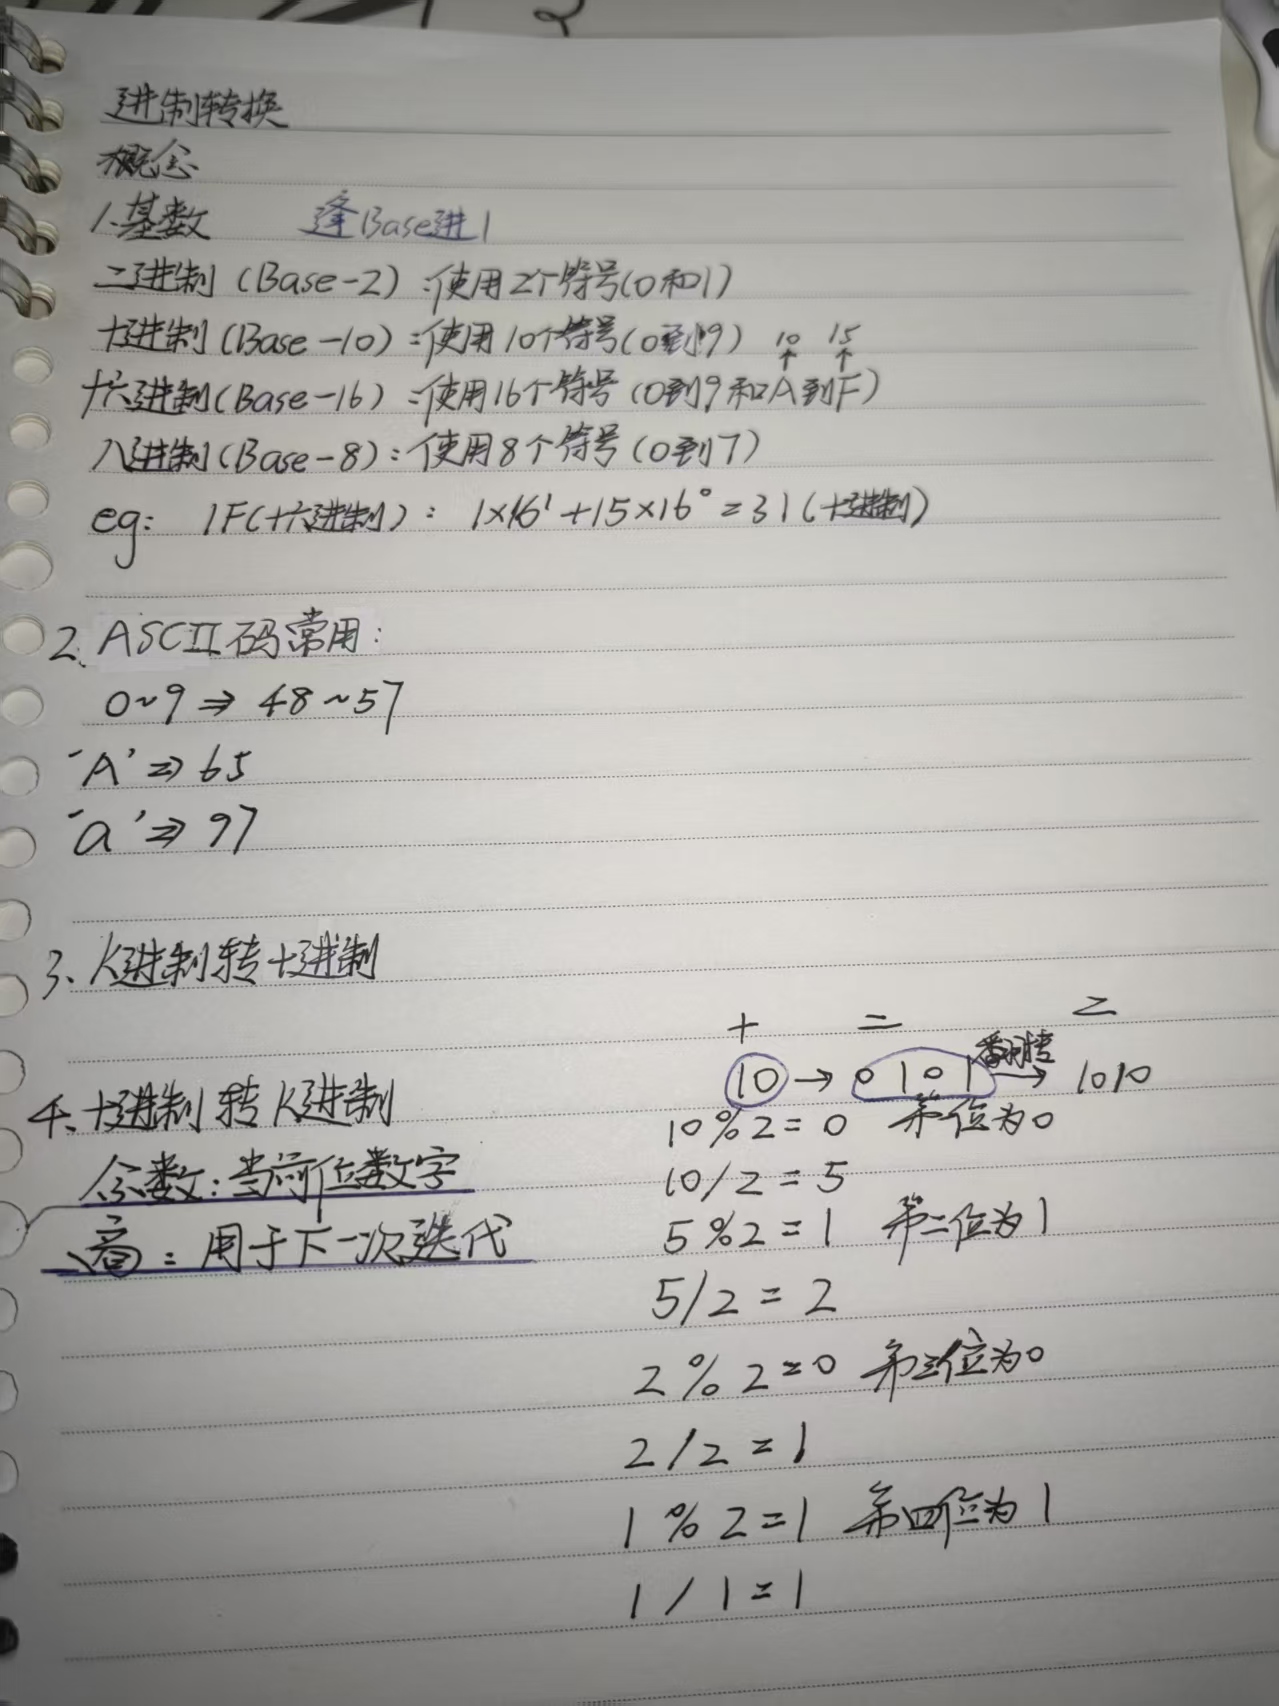 进制转换
概念
1.基数 逢Base进1
二进制 (Base-2):使用2个符号(0和1)
十进制(Base-10):使用10个符号(0到9) 10 15
↑ ↑
十六进制(Base-16):使用16个符号(0到9和A到F)
八进制(Base-8):使用8个符号(0到7)
eg: 1F(十六进制): 1×16¹+15×16⁰=31(十进制)
2、ASCII码常用:
0~9⇒48~57
'A'⇒65
'a'⇒97
3、K进制转十进制
十 二 二
10→0101 翻转→ 1010
4.十进制转K进制
10%2=0 第一位为0
余数:当前位数字
10/2=5
5%2=1 第二位为1
商:用于下一次迭代
5/2=2
2%2=0 第三位为0
2/2=1
1%2=1 第四位为1
1/1=1